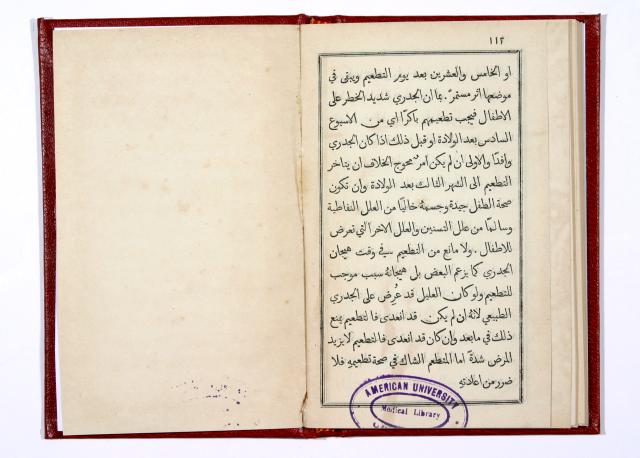 ١١٢
او الخامس والعشرين بعد يوم التطعيم ويبقى في
موضعها اثر مستمرّ. بما ان الجدري شديد الخطر على
الاطفال فيجب تطعيمهم باكرًا اي من الاسبوع
السادس بعد الولادة او قبل ذلك اذا كان الجدري
وافدًا والاولى ان لم يكن امرٌ محوج الخلاف ان يتاخر
التطعيم الى الشهر الثالث بعد الولادة وان تكون
صحة الطفل جيدة وجسمهُ خاليًا من العلل النفاطية
وسالمًا من علل التسنين والعلل الاخر التي تعرض
للاطفال. ولا مانع من التطعيم في وقت هيجان
الجدري كما يزعم البعض بل هيجانهُ سبب موجب
للتطعيم ولو كان العليل قد عُرِض على الجدري
الطبيعي لانهُ ان لم يكن قد انعدى فالتطعيم يمنع
ذلك في ما بعد وان كان قد انعدى فالتطعيم لا يزيد
المرض شدةً اما المتطعم الشاك في صحة تطعيمهِ فلا
ضرر من اعادتهِ
AMERICAN UNIVERSITY
Medical Library